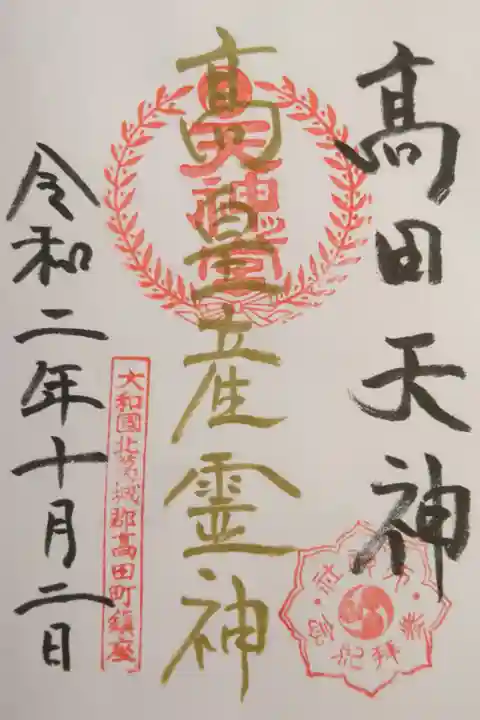 髙田天神
高皇産霊神
天神宮
大和國北葛城郡高田町鎮座
令和二年十月二日
参拝記念